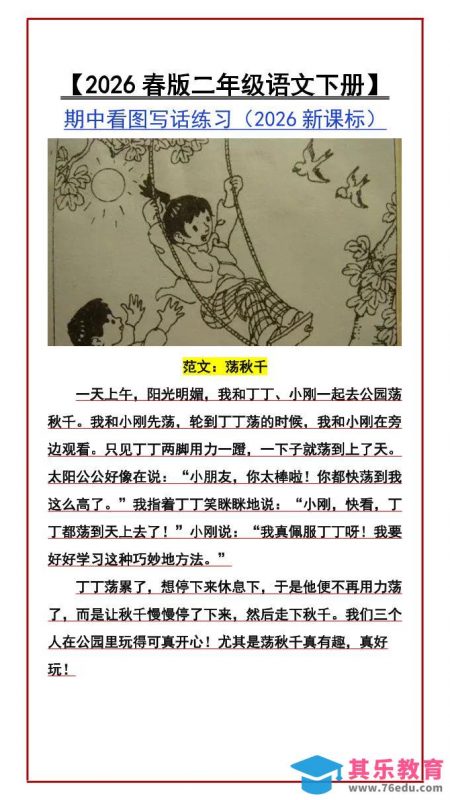 【2026 春版二年级语文下册】
期中看图写话练习（2026 新课标）
范文：荡秋千
一天上午，阳光明媚，我和丁丁、小刚一起去公园荡
秋千。我和小刚先荡，轮到丁丁荡的时候，我和小刚在旁
边观看。只见丁丁两脚用力一蹬，一下子就荡到上了天。
太阳公公好像在说：“小朋友，你太棒啦！你都快荡到我
这么高了。”我指着丁丁笑眯眯地说：“小刚，快看，丁
丁都荡到天上去了！”小刚说：“我真佩服丁丁呀！我要
好好学习这种巧妙地方法。”
丁丁荡累了，想停下来休息下，于是他便不再用力荡
了，而是让秋千慢慢停了下来，然后走下秋千。我们三个
人在公园里玩得可真开心！尤其是荡秋千真有趣，真好
玩！
其乐教育
www.76edu.com